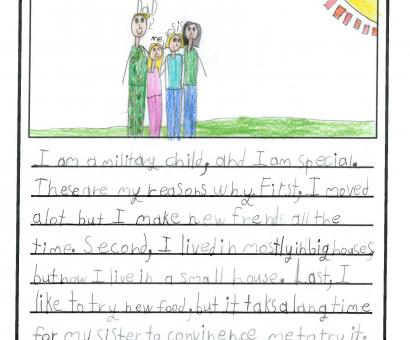 DaD
me
sis
I am a military child, and I am special.
These are my reasons why. First, I moved
a lot but I make new frends all the
time. Second, I lived in mostly in big houses,
but now I live in a small house. Last, I
like to try new food, but it taks a lang time
for my sister to convinence me to try it.